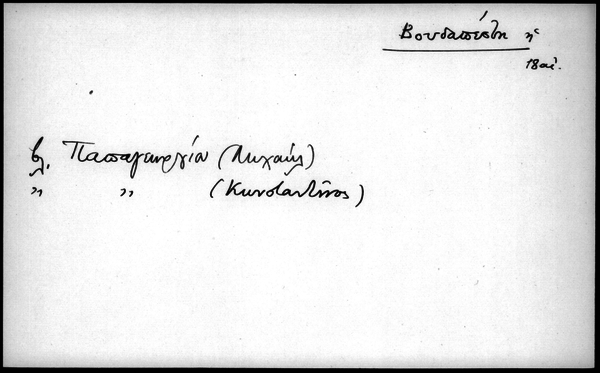 Βουδαπέστη ἡ
18 αἰ.
βλ. Παπαγεωργίου (Μιχαήλ)
" " (Κωνσταντῖνος)